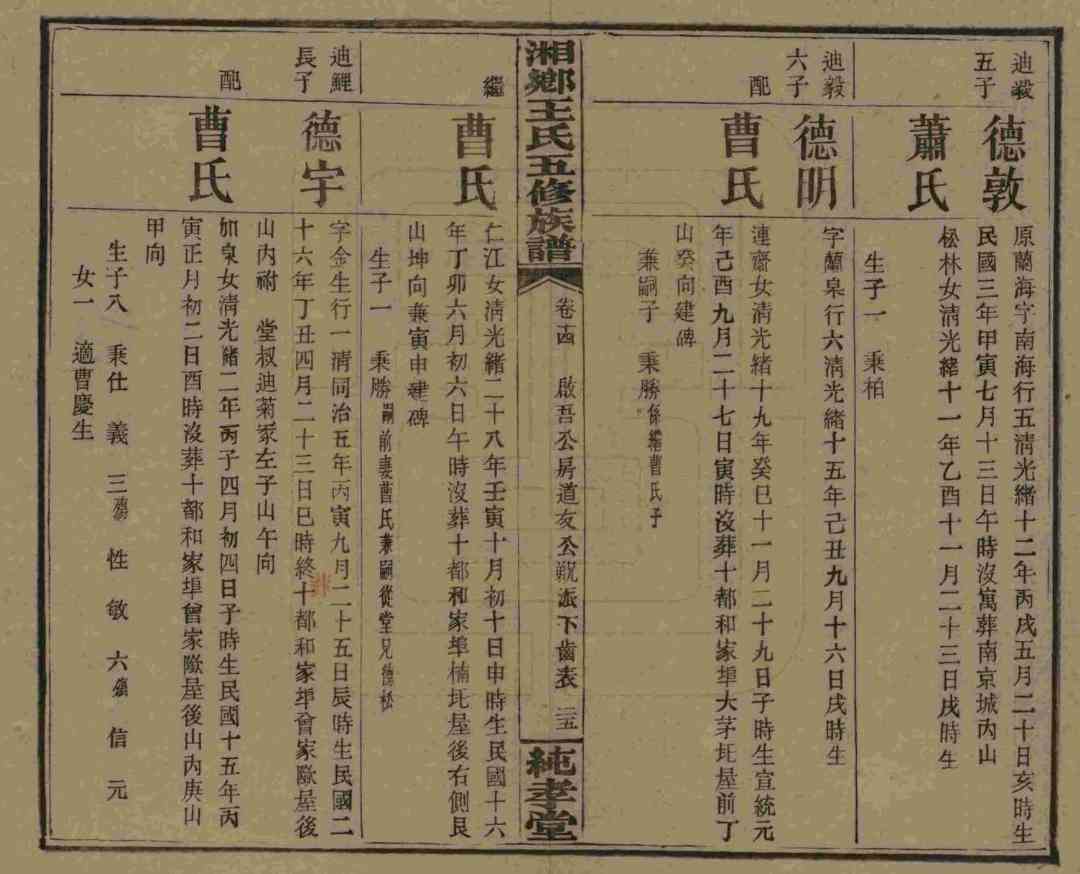 迪毅五子
德敦
原蘭海字南海行五清光緒十二年丙戌五月二十日亥時生
民國三年甲寅七月十三日午時沒寓葬南京城內山
蕭氏
松林女清光緒十一年乙酉十一月二十三日戌時生
生子一 秉柏
迪毅六子
德明
字蘭泉行六清光緒十五年己丑九月十六日戌時生
配
曹氏
連齋女清光緒十九年癸巳十一月二十九日子時生宣統元
年己酉九月二十七日寅時沒葬十都和家埠大茅坵屋前丁
山癸向建碑
兼嗣子 秉勝係繼曹氏子
湘鄉王氏五修族譜
卷十四 啟吾公房道友公覬派下齒表 三五
純孝堂
繼
曹氏
仁江女清光緒二十八年壬寅十月初十日申時生民國十六
年丁卯六月初六日午時沒葬十都和家埠楠坵屋後右側艮
山坤向兼寅申建碑
生子一 秉勝嗣前妻曹氏兼嗣從堂兄德松
迪鯉長子
德宇
字金生行一清同治五年丙寅九月二十五日辰時生民國二
十六年丁丑四月二十三日巳時終十都和家埠曾家隞屋後
山內祔 堂叔迪菊冢左子山午向
配
曹氏
如泉女清光緒二年丙子四月初四日子時生民國十五年丙
寅正月初二日酉時沒葬十都和家埠曾家隞屋後山丙庚山
甲向
生子八 秉仕 義 三殤 性 敏 六殤 信 元
女一 適曹慶生